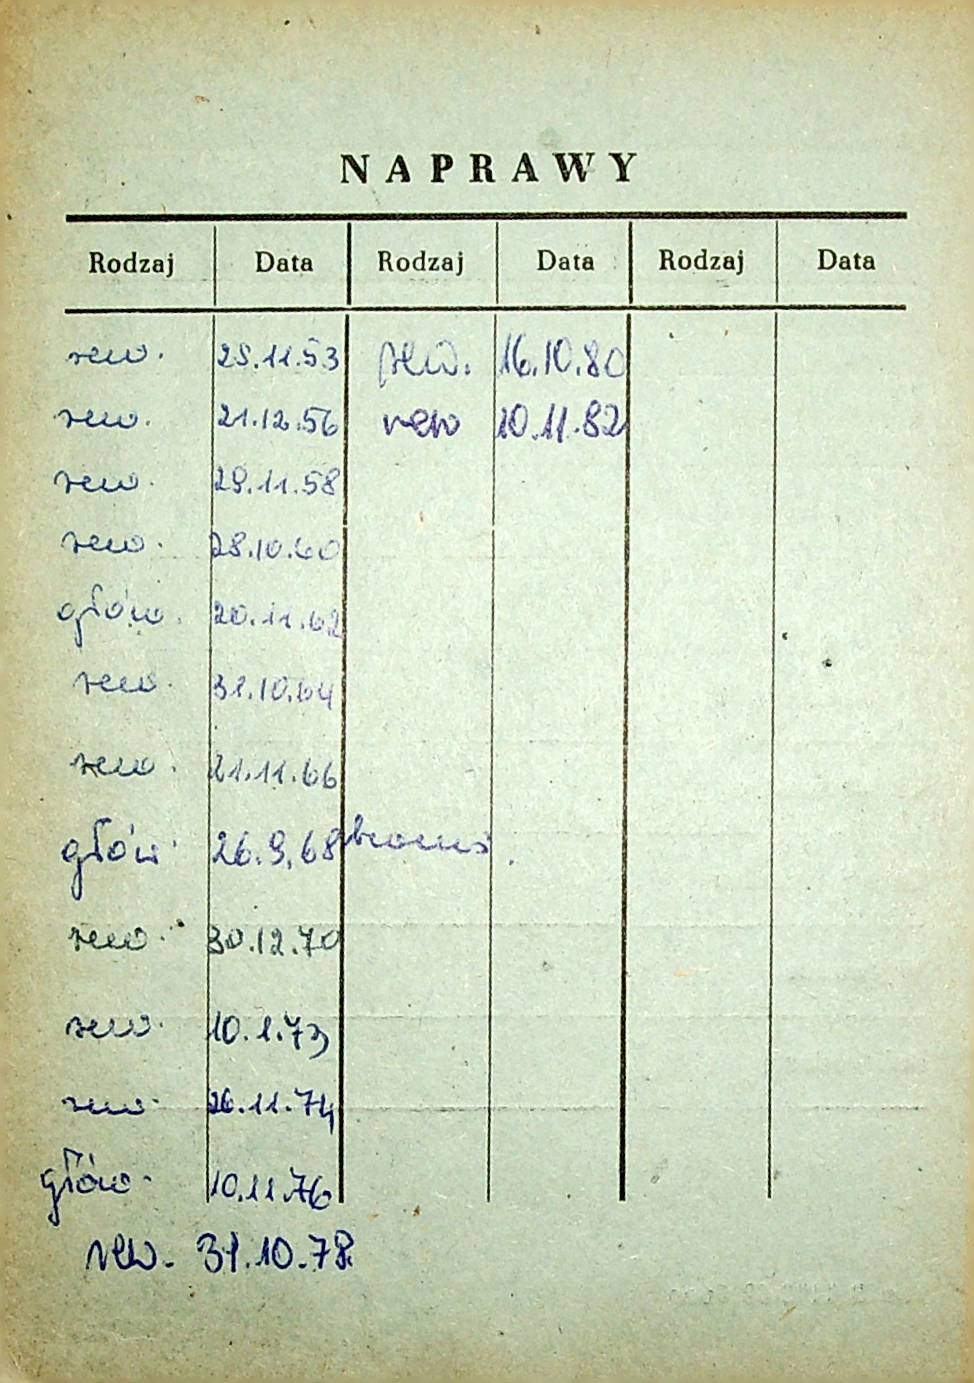 NAPRAWY
Rodzaj Data Rodzaj Data Rodzaj Data
rew. 25.11.53 rew. 16.10.80
rew. 21.12.56 rew 10.11.82
rew. 29.11.58
rew. 28.10.60
głów. 20.11.62
rew. 31.10.64
rew. 21.11.66
głów. 26.9.68
rew. 30.12.70
rew. 10.1.73
rew. 26.11.74
głów. 10.11.76
rew. 31.10.78